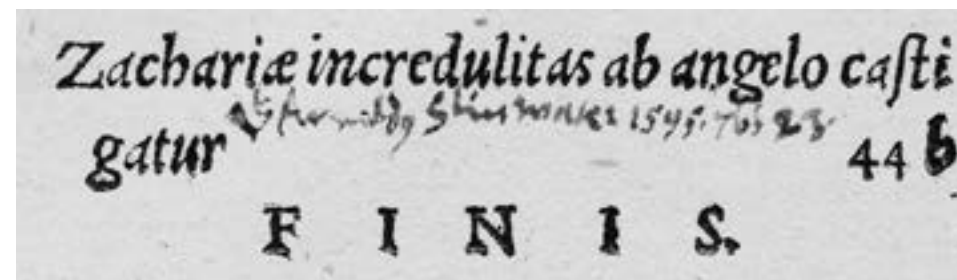 Zachariæ incredulitas ab angelo caſti
1595.
gatur 44 b
F I N I S.